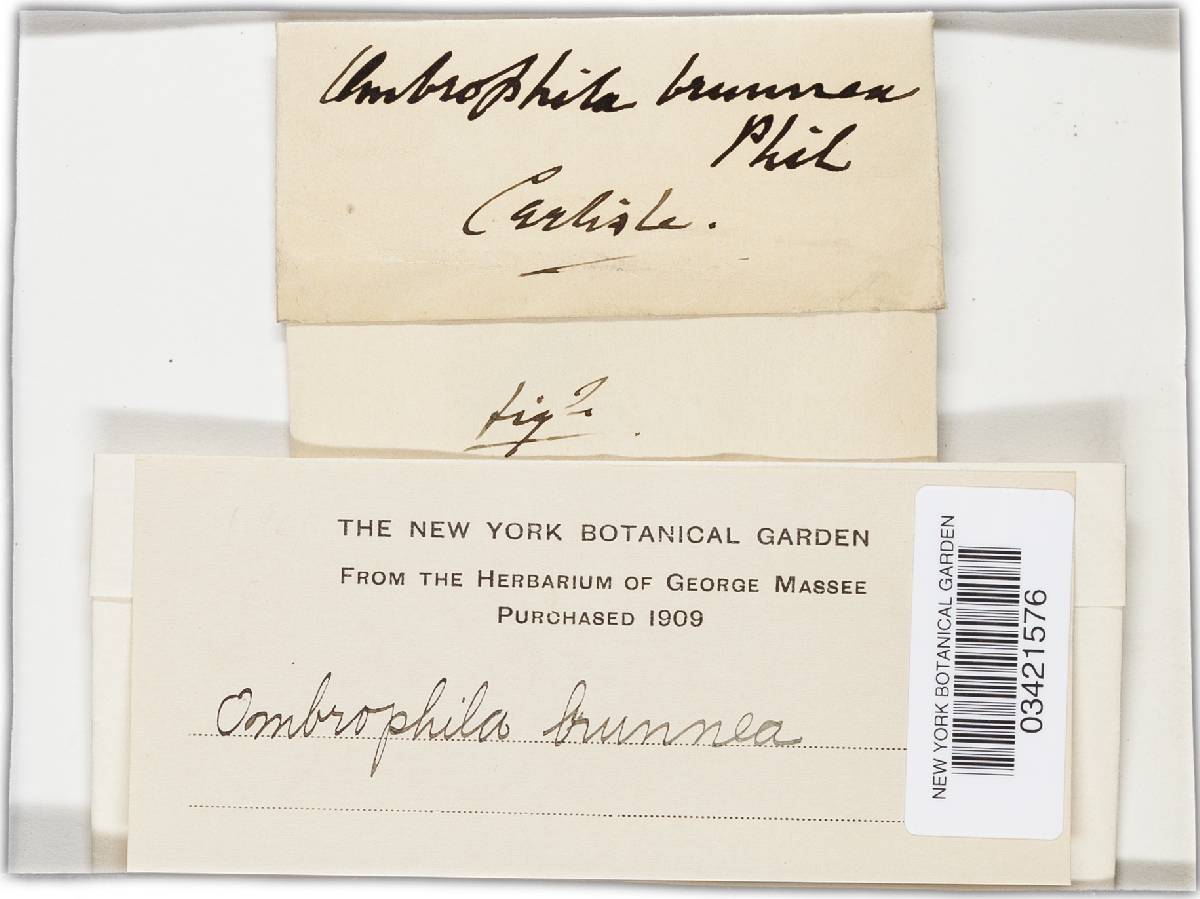 Ombrophila brunnea
Phil
Carlisle.
figd.
THE NEW YORK BOTANICAL GARDEN
FROM THE HERBARIUM OF GEORGE MASSEE
PURCHASED 1909
Ombrophila brunnea
NEW YORK BOTANICAL GARDEN
03421576